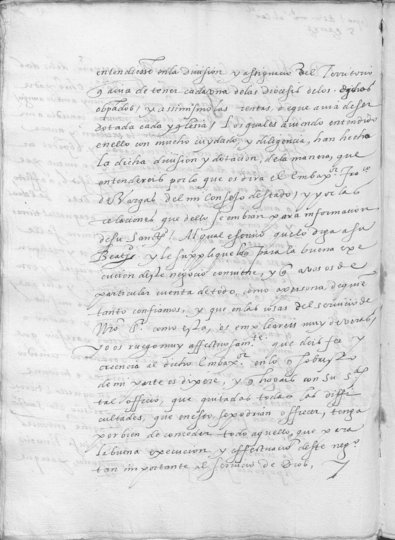 entendiesse en la division y assignacion del Territorio
q̃ avia de tener cada una de las diocesis de los dichos
obpados, y assimismo las rentas, de que avia de ser
dotada cada yglesia, Los quales aviendo entendido
en ello con mucho cuydado, y diligencia, han hecho
La dicha division, y dotacion, de la manera, que
entendereis por lo que os dira el Embaxor Franco
de Vargas del mi Consejo de Stado, y por las
relaciones, que dello se embian para informacion
de su Sand. Al qual escrivo que lo diga a su
Beatd, y le supplique lo para la buena exe
cucion deste negocio conviene, y q̃ a vos os de
particular cuenta de todo, como a persona, de quien
tanto confiamos, y que en las cosas del servicio de
Nro Sr. como esta, os empleareis muy de veras,
y os ruego muy affectuosamte. que deis fee y
creencia al dicho Embaxor en lo q̃ sobrello
de mi parte os dixere, y q̃ hagais con su Sd
tal officio, que quitadas todas las diffi
cultades, que en esto se podrian offrecer, tenga
por bien de conceder todo aquello, que para
la buena execucion, y effectuacion deste nego
tan importante al servicio de Dios,